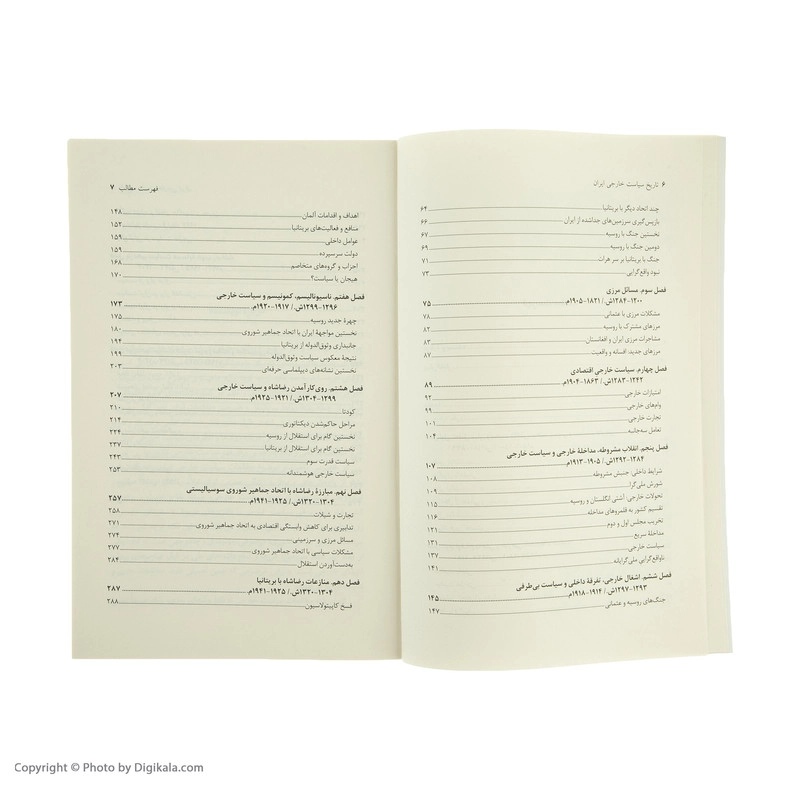 ۶ تاریخ سیاست خارجی ایران
چند اتحاد دیگر با بریتانیا ۶۴
بازپس‌گیری سرزمین‌های جداشده از ایران ۶۶
نخستین جنگ با روسیه ۶۷
دومین جنگ با روسیه ۶۹
جنگ با بریتانیا بر سر هرات ۷۱
نبود واقع‌گرایی ۷۳
فصل سوم. مسائل مرزی
۱۲۰۰-۱۲۸۴ش./ ۱۸۲۱-۱۹۰۵م. ۷۵
مشکلات مرزی با عثمانی ۷۸
مرزهای مشترک با روسیه ۸۲
مشاجرات مرزی ایران و افغانستان ۸۳
مرزهای جدید: افسانه و واقعیت ۸۷
فصل چهارم. سیاست خارجی اقتصادی
۱۲۴۲-۱۲۸۳ش./ ۱۸۶۳-۱۹۰۴م. ۸۹
امتیازات خارجی ۹۲
وام‌های خارجی ۹۹
تجارت خارجی ۱۰۱
تعامل سه‌جانبه ۱۰۴
فصل پنجم. انقلاب مشروطه، مداخلهٔ خارجی و سیاست خارجی
۱۲۸۴-۱۲۹۲ش./ ۱۹۰۵-۱۹۱۳م. ۱۰۷
شرایط داخلی: جنبش مشروطه ۱۰۸
شورش ملی‌گرا ۱۰۹
تحولات خارجی: آشتی انگلستان و روسیه ۱۱۵
تقسیم کشور به قلمروهای مداخله ۱۱۶
تخریب مجلس اول و دوم ۱۲۱
مداخلهٔ سریع ۱۳۱
سیاست خارجی ۱۳۷
ناواقع‌گرایی ملی‌گرایانه ۱۴۱
فصل ششم. اشغال خارجی، تفرقهٔ داخلی و سیاست بی‌طرفی
۱۲۹۳-۱۲۹۷ش./ ۱۹۱۴-۱۹۱۸م. ۱۴۵
جنگ‌های روسیه و عثمانی ۱۴۷
فهرست مطالب ۷
اهداف و اقدامات آلمان ۱۴۸
منافع و فعالیت‌های بریتانیا ۱۵۲
عوامل داخلی ۱۵۹
دولت سرسپرده ۱۵۹
احزاب و گروه‌های متخاصم ۱۶۸
هیجان یا سیاست؟ ۱۷۰
فصل هفتم. ناسیونالیسم، کمونیسم و سیاست خارجی
۱۲۹۶-۱۲۹۹ش./ ۱۹۱۷-۱۹۲۰م. ۱۷۳
چهرهٔ جدید روسیه ۱۷۵
نخستین مواجههٔ ایران با اتحاد جماهیر شوروی ۱۸۰
جانبداری وثوق‌الدوله از بریتانیا ۱۹۴
نتیجهٔ معکوس سیاست وثوق‌الدوله ۱۹۹
نخستین نشانه‌های دیپلماسی حرفه‌ای ۲۰۳
فصل هشتم. روی کار آمدن رضاشاه و سیاست خارجی
۱۲۹۹-۱۳۰۴ش./ ۱۹۲۱-۱۹۲۵م. ۲۰۷
کودتا ۲۱۰
مراحل حاکم‌شدن دیکتاتوری ۲۱۴
نخستین گام برای استقلال از روسیه ۲۲۴
نخستین گام برای استقلال از بریتانیا ۲۳۷
سیاست قدرت سوم ۲۴۳
سیاست خارجی هوشمندانه ۲۵۳
فصل نهم. مبارزهٔ رضاشاه با اتحاد جماهیر شوروی سوسیالیستی
۱۳۰۴-۱۳۲۰ش./ ۱۹۲۵-۱۹۴۱م. ۲۵۷
تجارت و شیلات ۲۵۸
تدابیری برای کاهش وابستگی اقتصادی به اتحاد جماهیر شوروی ۲۷۱
مسائل مرزی و سرزمینی ۲۷۴
مشکلات سیاسی با اتحاد جماهیر شوروی ۲۷۷
به‌دست‌آوردن استقلال ۲۸۴
فصل دهم. منازعات رضاشاه با بریتانیا
۱۳۰۴-۱۳۲۰ش./ ۱۹۲۵-۱۹۴۱م. ۲۸۷
فسخ کاپیتولاسیون ۲۸۸
Copyright © Photo by Digikala.com